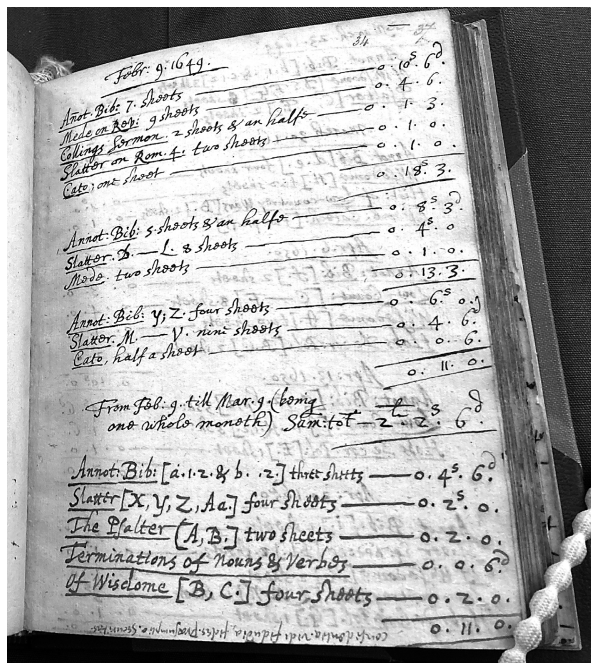 34 37
Febr: 9. 1649.
Anot. Bib: 7. sheets — 0. 10ˢ. 6ᵈ
Mede on Rev: 9 sheets — 0. 4. 6.
Collings Sermon. 2 sheets & an halfe — 0. 1. 3.
Slatter on Rom. 4. two sheets — 0. 1. 0.
Cato; one sheet — 0. 1. 0.
0. 18ˢ. 3.
Annot: Bib: 5. sheets & an halfe — 0. 8ˢ. 3ᵈ
Slatter. D. — L. 8 sheets — 0. 4ˢ. 0
Mede. two sheets — 0. 1. 0
0. 13. 3.
Annot: Bib: Y; Z. four sheets — 0. 6ˢ. 0.
Slatter. M. — V. nine sheets — 0. 4. 6.
Cato, half a sheet — 0. 0. 6.
0. 11. 0.
From Feb: 9. till Mar. 9. (being
one whole moneth) Sum: tot — 2ˡ. 2ˢ. 6ᵈ
Annot: Bib: [a. 1. 2. & b. . 2.] three sheets — 0. 4ˢ. 6ᵈ
Slatter [X, Y, Z, Aa.] four sheets — 0. 2ˢ. 0.
The Psalter (A, B.] two sheets — 0. 2. 0.
Terminations of Nouns & Verbes — 0. 0. 6ᵈ
Of Wisdome [B, C.] four sheets — 0. 2. 0.
0. 11. 0.